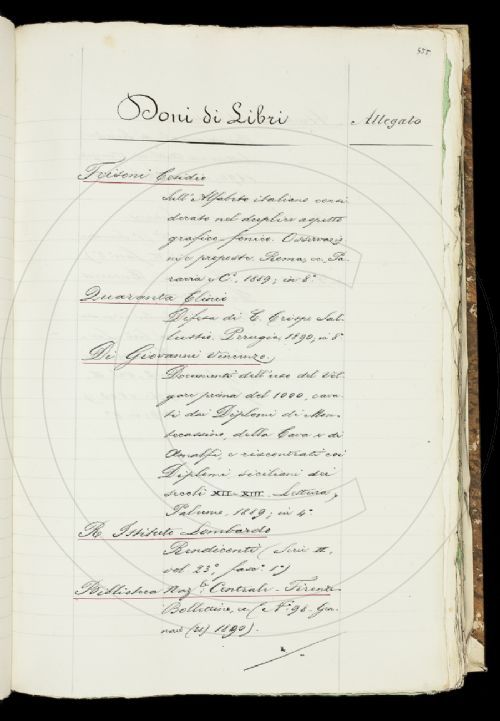 555
Doni di Libri
Allegato
Trisoni Cesidio
Sull'Alfabeto italiano consi
derato nel duplice aspetto
grafico-fonico. Osservazio
ni e proposte. Roma, ec. Pa-
ravia e C., 1889; in 8°.
Quaranta Clinio
Difesa di C. Crispo Sal-
lustio. Perugia, 1890, in 8°
Di Giovanni Vincenzo.
Documenti dell'uso del Vol-
gare prima del 1000, cava-
ti dai Diplomi di Mon-
tecassino, della Cava e di
Amalfi, e riscontrati coi
Diplomi siciliani dei
secoli XII-XIII. Lettura,
Palermo, 1889; in 4°.
R. Istituto Lombardo
Rendiconti (Serie II,
vol. 23°, fasc. 1°)
Biblioteca Naz. Centrale-Firenze
Bollettino, ec. (N° 98. Gen-
naio 1890).